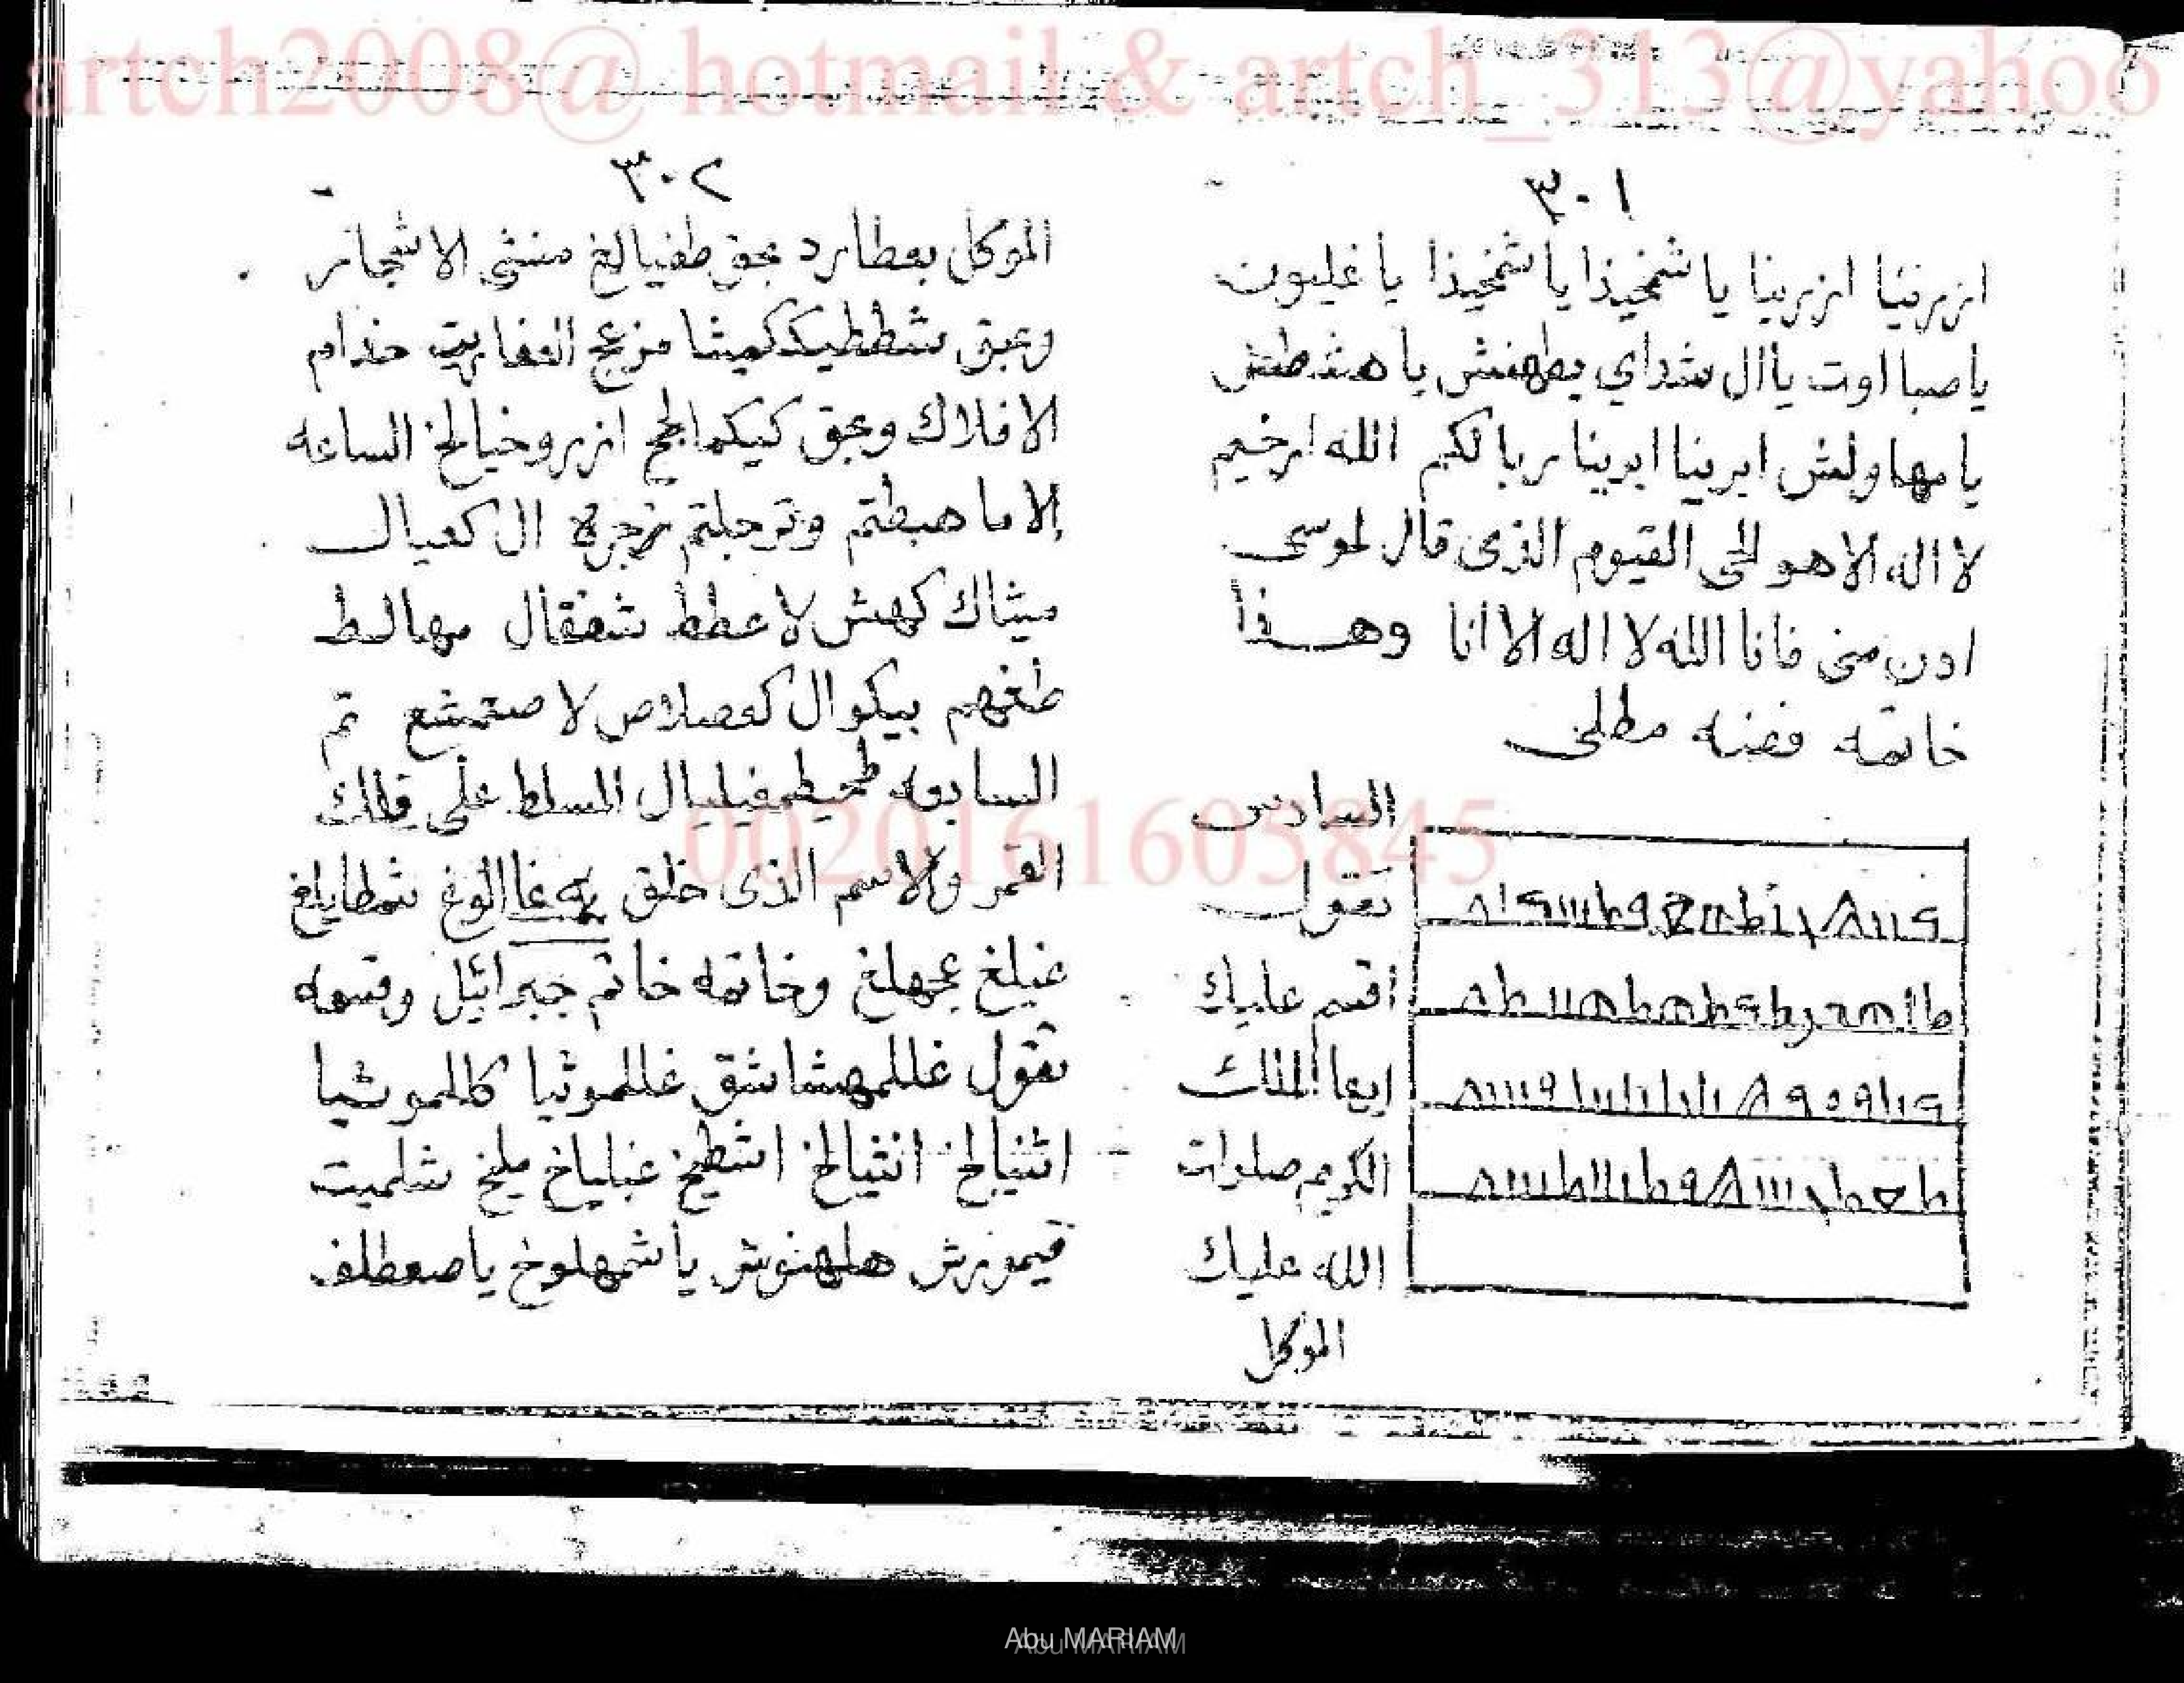 artch2008@ hotmail & artch_313@yahoo
٣٠١
ازرينا ازرينا يا شمخيذا يا شمخيذا يا غليون
يا صبااوت ياال شداي يطهنش يا هشطش
يا مهاولش ابرينا ابرينا ربالكم الله ارخيم
لا اله الا هو الحى القيوم الذى قال لموسى
ادن منى فانا الله لا اله الا انا وهذا
خاتمه فضه مطلى
السادس
تقول
اقسم عليك
ايها الملك
الكريم صلوات
الله عليك
الموكل
٣٠٢
الموكل بعطارد بحق طفيالغ منشى الاشجار
وبحق شططيككميشا مزعج العفاريت خدام
الافلاك وبحق كيكمالحج ازروخيالخ الساعه
الا ما هبطتم وترجلتم زجره ال كعيال
ميثاك كهش لاعطط شفقال مهالط
طغهم بيكوال كعصلاص لا صتمشع تم
السابعه طحيطمغيليال المسلط على فلك
القمر والاسم الذى خلق به غاالوغ شطايلغ
غيلغ عجهلغ وخاتمه خاتم جبرائيل وقسمه
تقول غللمهشاشق غللموثيا كاللموشيا
اثنيالخ انثيالخ اشطيخ غبلياخ مليخ شلميت
قيموزش هلهنوش يا شمهلوخ يا صعطلف
002016160​3845
Abu MARIAM